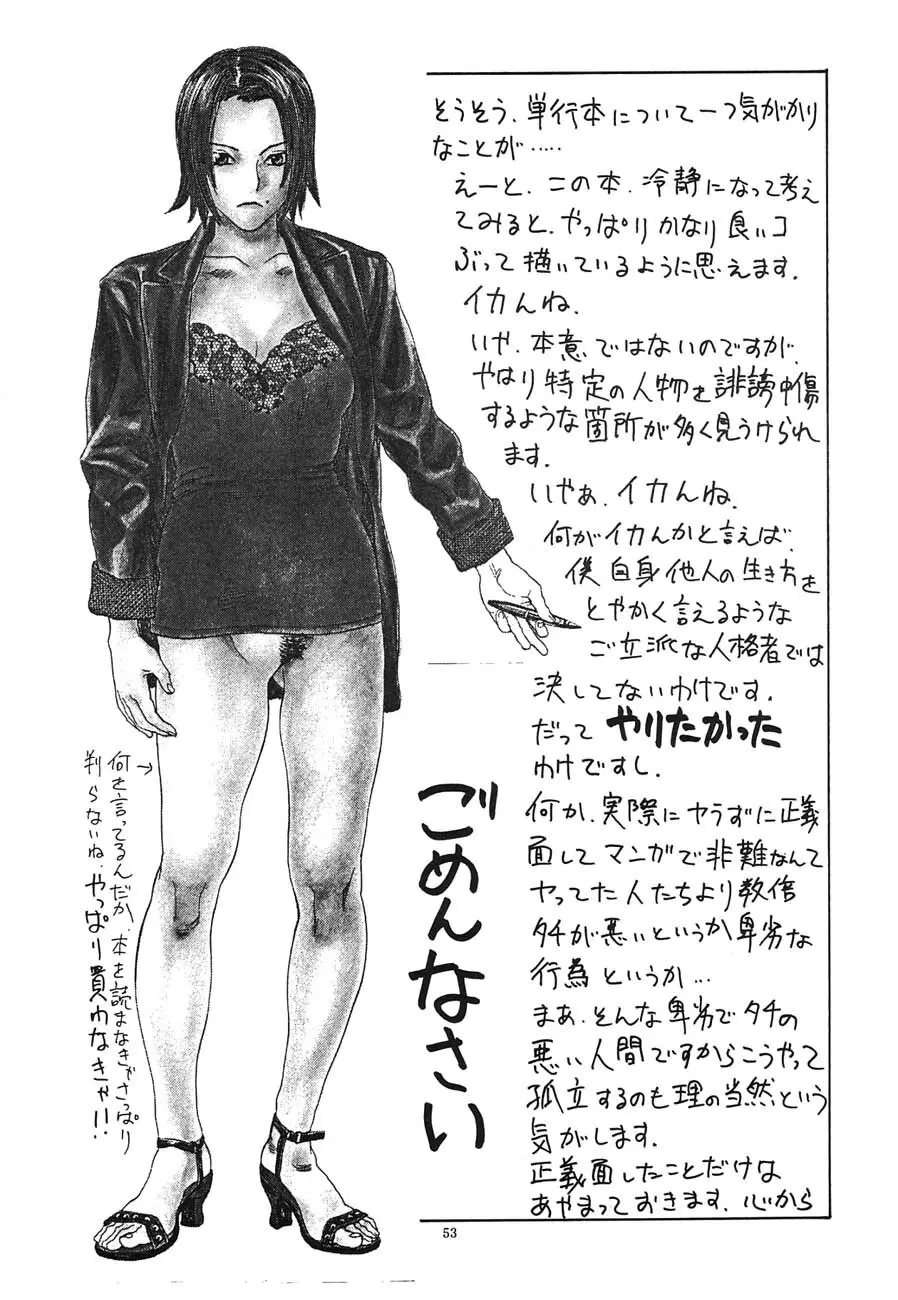 そうそう、単行本について一つ気がかり
なことが……
えーと、この本、冷静になって考え
てみると、やっぱりかなり良いコ
ぶって描いているように思えます。
イカんね。
いや、本意ではないのですが、
やはり特定の人物を誹謗中傷
するような箇所が多く見うけられ
ます。
いやぁ、イカんね。
何がイカんかと言えば、
僕自身他人の生き方を
とやかく言えるような
ご立派な人格者では
決してないわけです。
だってやりたかった
わけですし。
何か、実際にヤらずに正義
面してマンガで非難なんて
ヤってた人たちより数倍
タチが悪いというか卑劣な
行為というか…
まあ、そんな卑劣でタチの
悪い人間ですからこうやって
孤立するのも理の当然という
気がします。
正義面したことだけは
あやまっておきます。心から
ごめんなさい
何を言ってるんだか、本を読まなきゃさっぱり
判らないね、やっぱり買わなきゃ!!
53